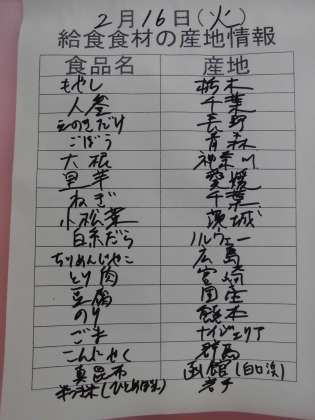 2月16日(火)
給食食材の産地情報
食品名 産地
もやし 栃木
人参 千葉
えのきだけ 長野
ごぼう 青森
大根 神奈川
里芋 愛媛
ねぎ 千葉
小松菜 茨城
白糸だら ノルウェー
ちりめんじゃこ 広島
とり肉 宮崎
豆腐 国産
のり 熊本
ごま ナイジェリア
こんにゃく 群馬
真昆布 函館(白口浜)
米(ひとめぼれ) 岩手